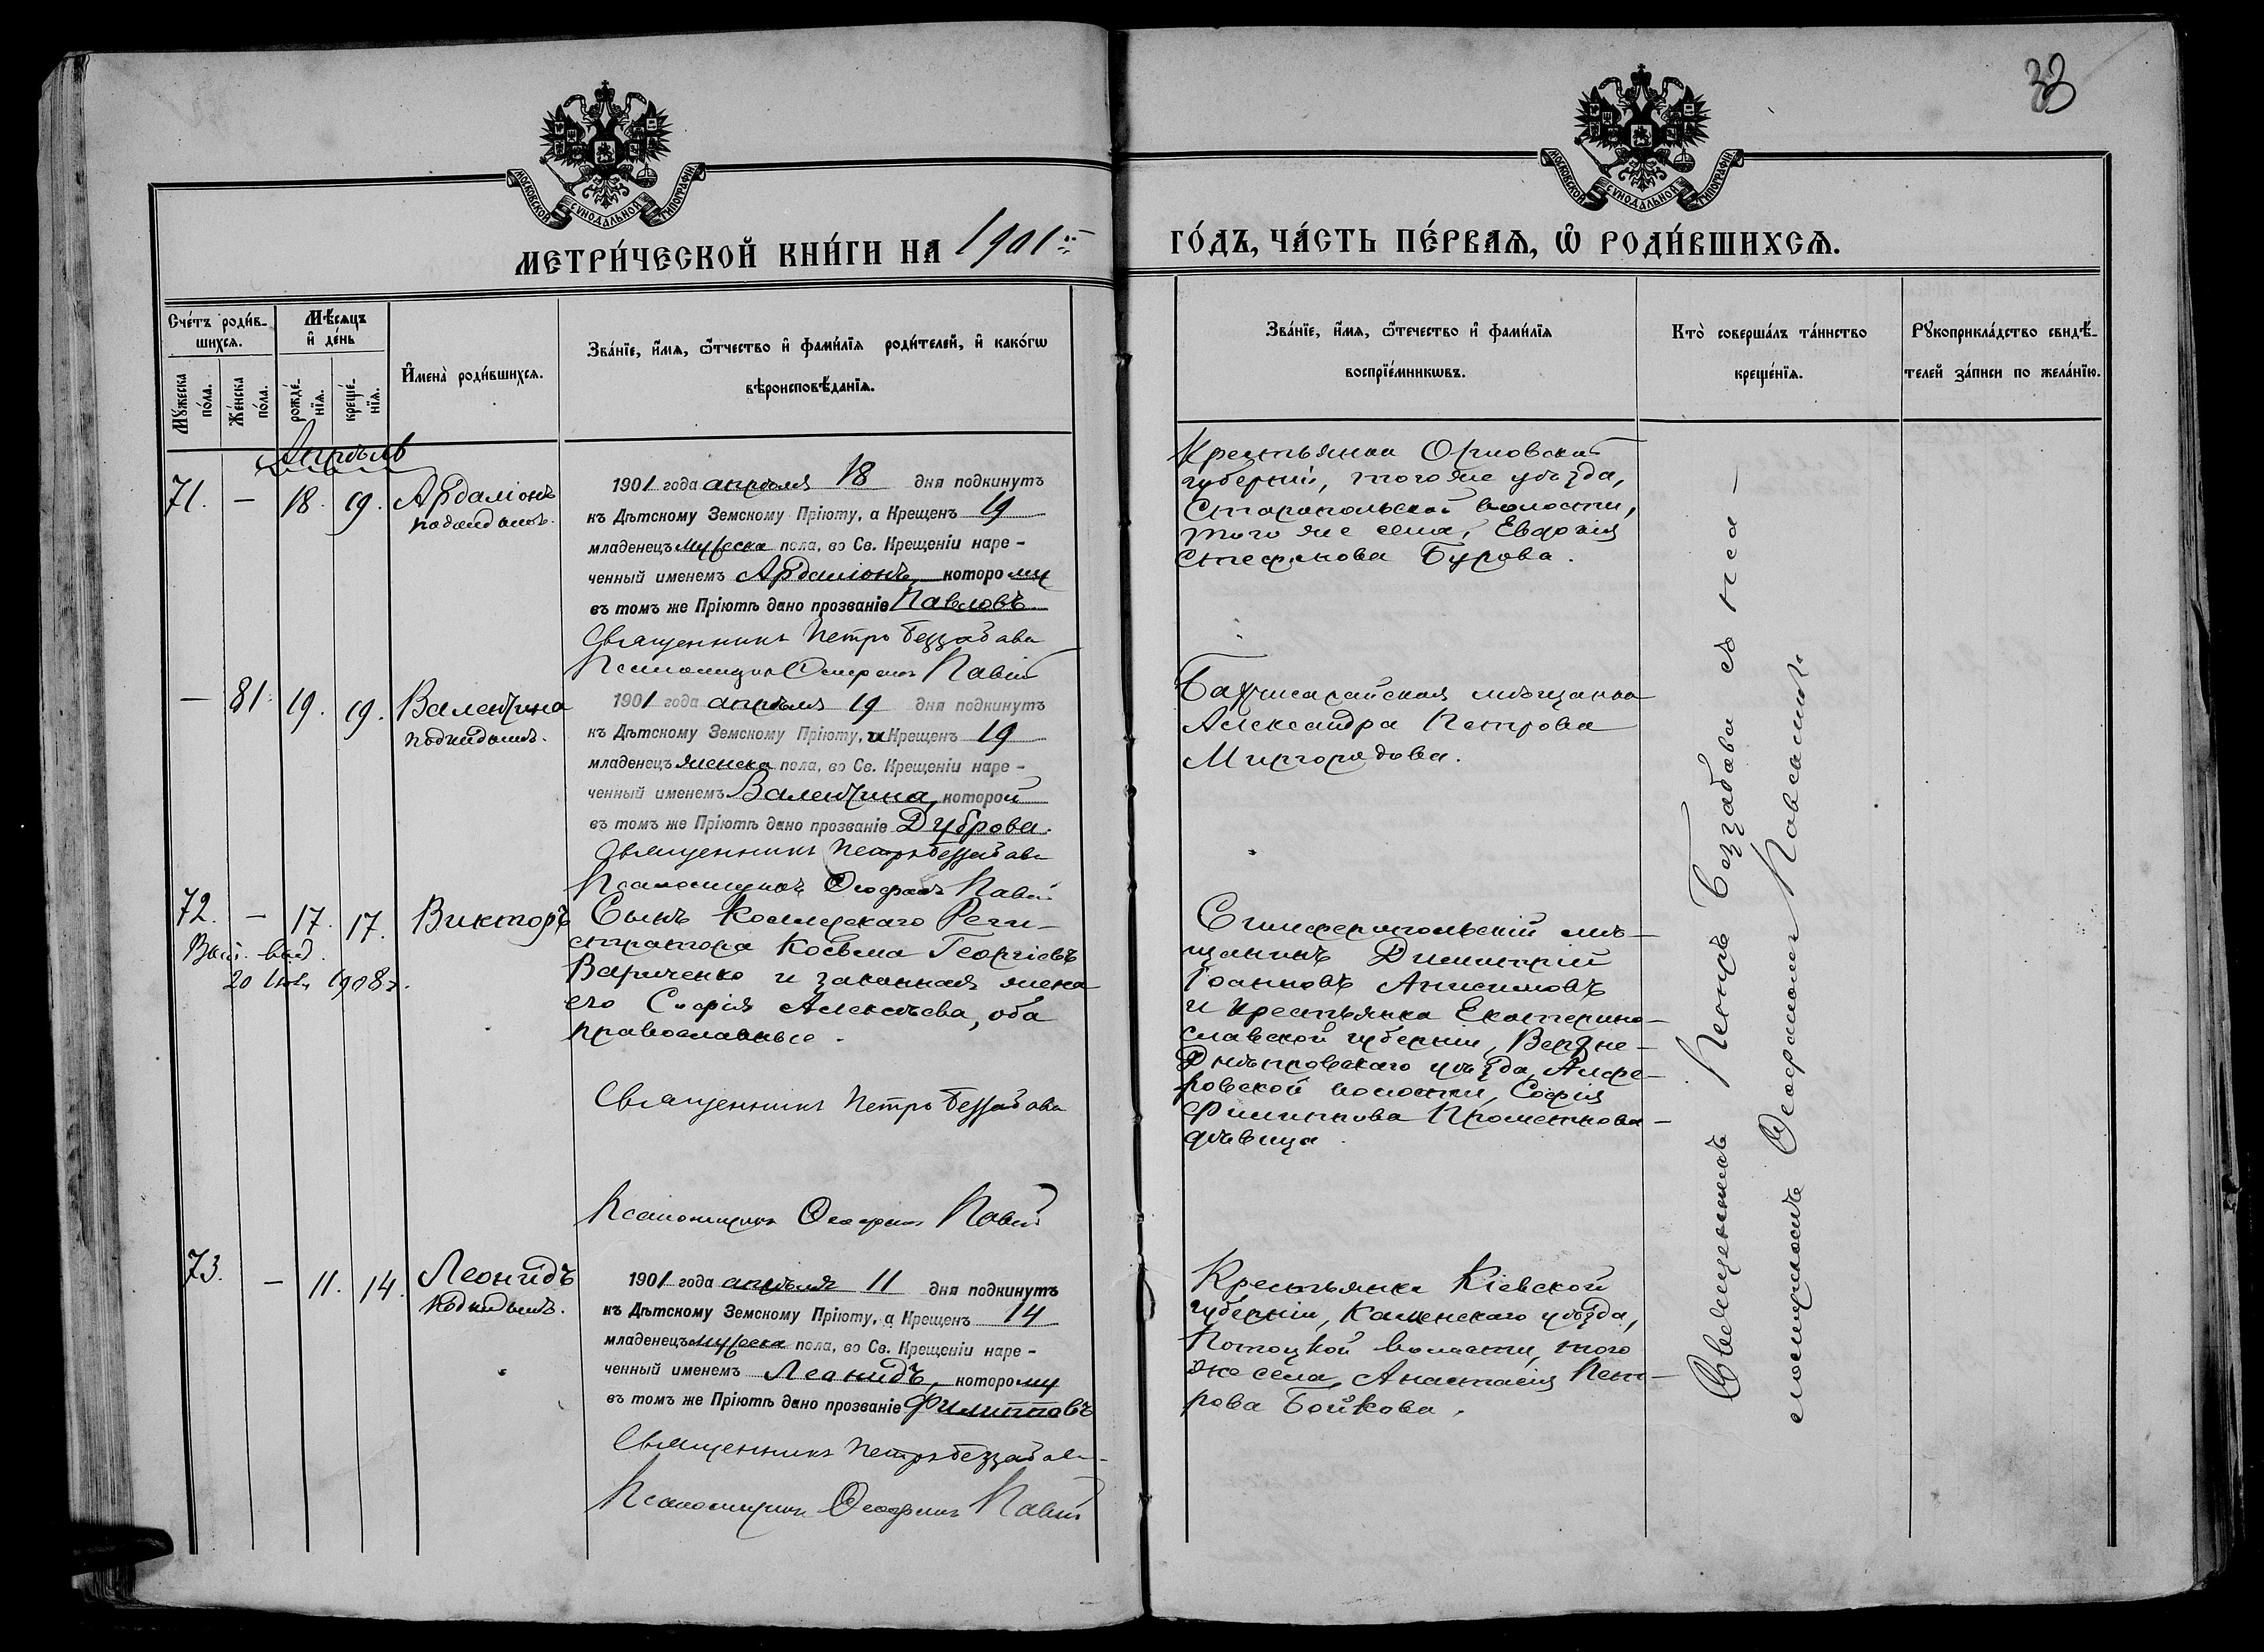 33
МОСКОВСКОЙ СѴНОДАЛЬНОЙ ТИПОГРАФІИ
МОСКОВСКОЙ СѴНОДАЛЬНОЙ ТИПОГРАФІИ
МЕТРИ́ЧЕСКОЙ КНИ́ГИ НА 1901й
ГО́ДЪ, ЧА́СТЬ ПЕ́РВАѦ, Ѡ҆ РОДИ́ВШИХСѦ.
Сче́тъ роди́в-
шихсѧ.
Мѣ́сѧцъ
и҆ де́нь
Мꙋ́жеска
по́ла.
Же́нска
по́ла.
рожде́-
нїѧ.
креще́-
нїѧ.
И҆мена̀ роди́вшихсѧ.
Зва́нїе, и҆́мѧ, ѻ҆́тчество и҆ фами́лїѧ роди́телей, и҆ како́гѡ
вѣроисповѣ́данїѧ.
Зва́нїе, и҆́мѧ, ѻ҆те́чество и҆ фами́лїѧ
воспрїе́мникѡвъ.
Кто̀ соверша́лъ та́инство
креще́нїѧ.
Рꙋкоприкла́дство свидѣ́-
телей за́писи по жела́нїю.
Апрѣль
71. — 18. 19. Ардаліонъ
подкидышъ.
1901 года апрѣля 18 дня подкинутъ
къ Дѣтскому Земскому Пріюту, а Крещенъ 19
младенецъ мужеска пола, во Св. Крещеніи наре-
ченный именемъ Ардаліонъ, которому
въ томъ же Пріютѣ дано прозваніе Павловъ
Священникъ Петръ Беззабава
Псаломщикъ Ѳеофилъ
Крестьянка Орловской
губерніи, того же уѣзда,
волости,
того же села, Евдокія
Стефанова Бурова.
— 81. 19. 19. Валентина
подкидышъ.
1901 года апрѣля 19 дня подкинутъ
къ Дѣтскому Земскому Пріюту, и Крещенъ 19
младенецъ женска пола, во Св. Крещеніи наре-
ченный именемъ Валентина, которой
въ томъ же Пріютѣ дано прозваніе Дуброва.
Священникъ Петръ Беззабава
Псаломщикъ Ѳеофилъ
Бахчисарайская мѣщанка
Александра Петрова
Миргородова.
72. — 17. 17. Викторъ
Вып. выд.
20 1908 г.
Сынъ Коллежскаго Реги-
стратора Косьма Георгіевъ
Вариченко и законная жена
его Софія Алексѣева, оба
православные.
Священникъ Петръ Беззабава
Псаломщикъ Ѳеофилъ
Симферопольскій мѣ-
щанинъ Димитрій
Іоанновъ Анисимовъ
и крестьянка Екатерино-
славской губерніи, Верхне-
Днѣпровскаго уѣзда, Алфе-
ровской волости, Софія
Филиппова
дѣвица.
73. — 11. 14. Леонидъ
подкидышъ.
1901 года апрѣля 11 дня подкинутъ
къ Дѣтскому Земскому Пріюту, а Крещенъ 14
младенецъ мужеска пола, во Св. Крещеніи наре-
ченный именемъ Леонидъ, которому
въ томъ же Пріютѣ дано прозваніе Филипповъ
Священникъ Петръ Беззабава
Псаломщикъ Ѳеофилъ
Крестьянка Кіевской
губерніи, Каменскаго уѣзда,
Потоцкой волости, того
же села, Анастасія Пет-
рова Бойкова.
Священникъ Петръ Беззабава съ пса-
ломщикомъ Ѳеофиломъ